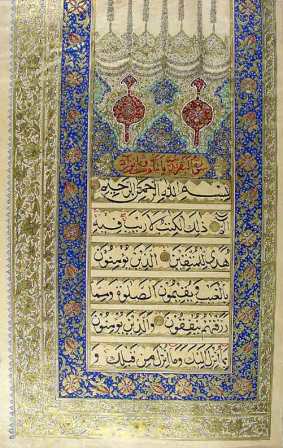 سورة البقرة
بِسْمِ اللهِ الرَّحْمٰنِ الرَّحِيمِ
الم ذٰلِكَ الْكِتٰبُ لَا رَيْبَ فِيهِ
هُدًى لِلْمُتَّقِينَ الَّذِينَ يُؤْمِنُونَ
بِالْغَيْبِ وَيُقِيمُونَ الصَّلٰوةَ وَمِمَّا
رَزَقْنٰهُمْ يُنْفِقُونَ وَالَّذِينَ يُؤْمِنُونَ
بِمَا اُنْزِلَ اِلَيْكَ وَمَا اُنْزِلَ مِنْ قَبْلِكَ وَ